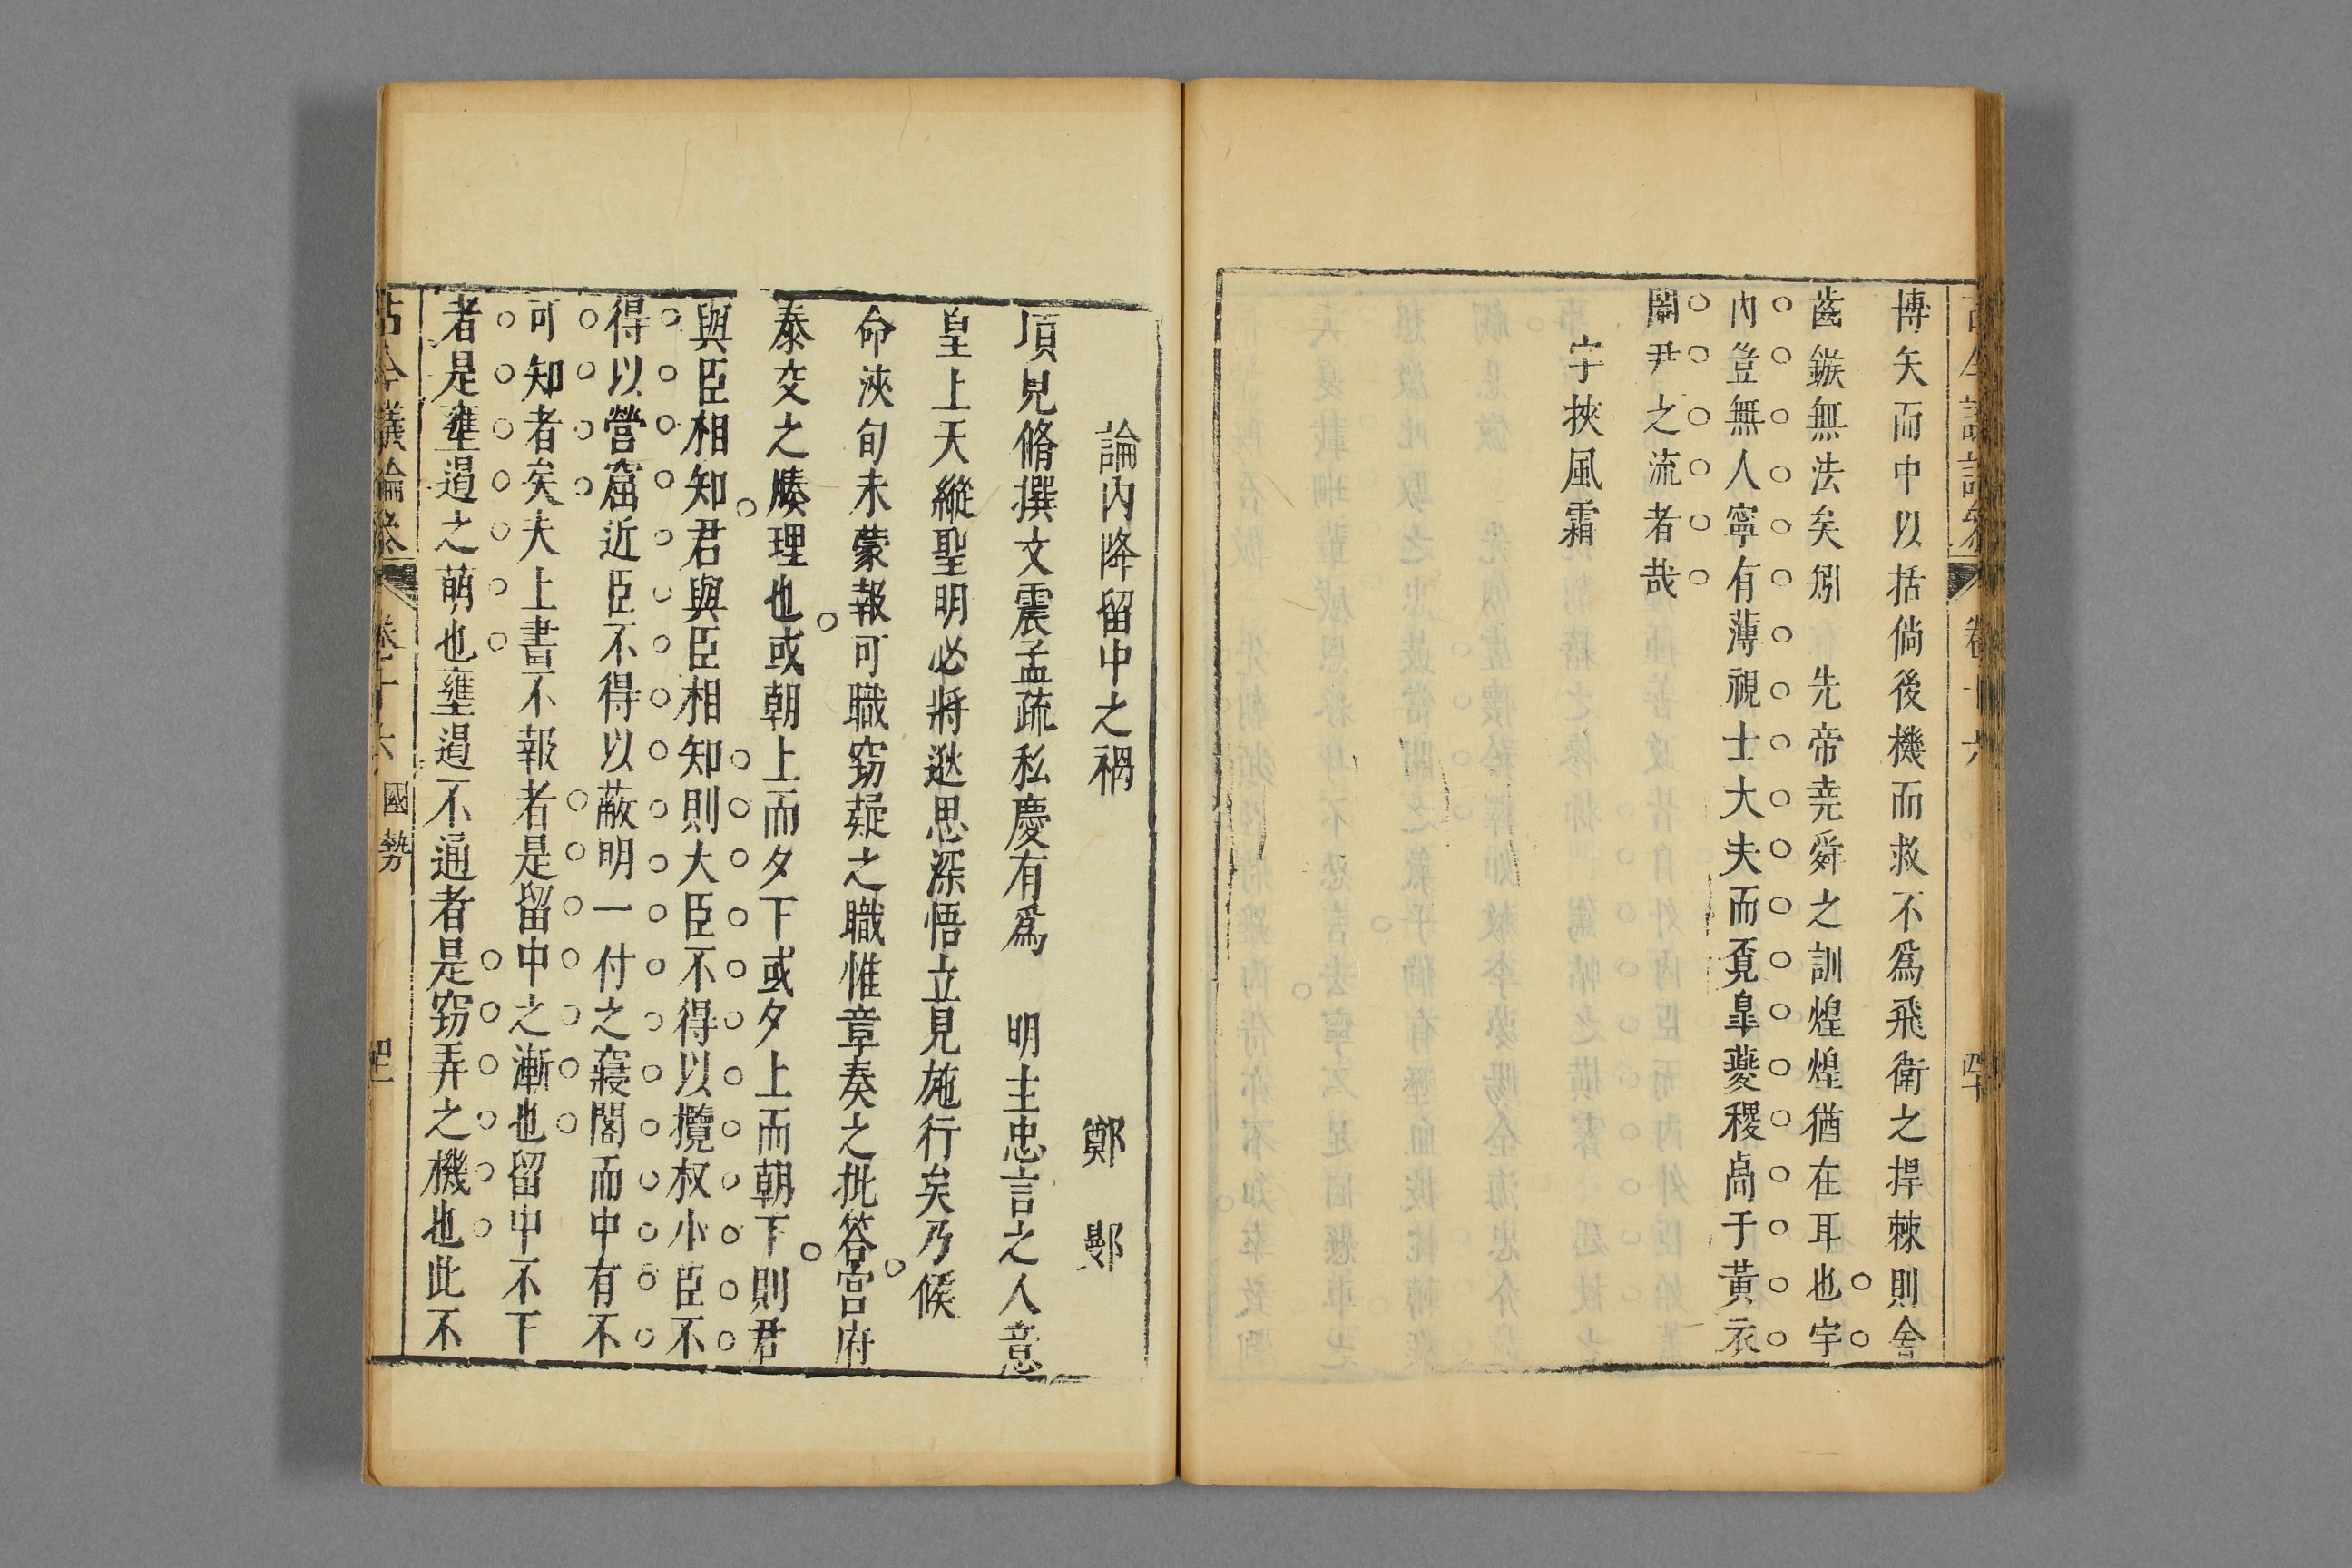 博矢而中以括倘後機而救不爲飛衛之捍棘則舍
齒鏃無法矣矧　先帝堯舜之訓煌煌猶在耳也宇
內豈無人寧有薄視士大夫而覔臯夔稷卨于黃衣
閹尹之流者哉
字挾風霜
卷十六
論內降留中之禍　鄭鄤
項見脩撰文震孟疏私慶有爲　明主忠言之人意
皇上天縱聖明必將逖思深悟立見施行矣乃候
命浹旬未蒙報可職竊疑之職惟章奏之批答宮府
泰交之腠理也或朝上而夕下或夕上而朝下則君
與臣相知君與臣相知則大臣不得以攬权小臣不
得以營窟近臣不得以蔽明一付之寢閣而中有不
可知者矣夫上書不報者是留中之漸也留中不下
者是壅遏之萌也壅遏不通者是竊弄之機也此不
古今議論參　卷十六　國勢